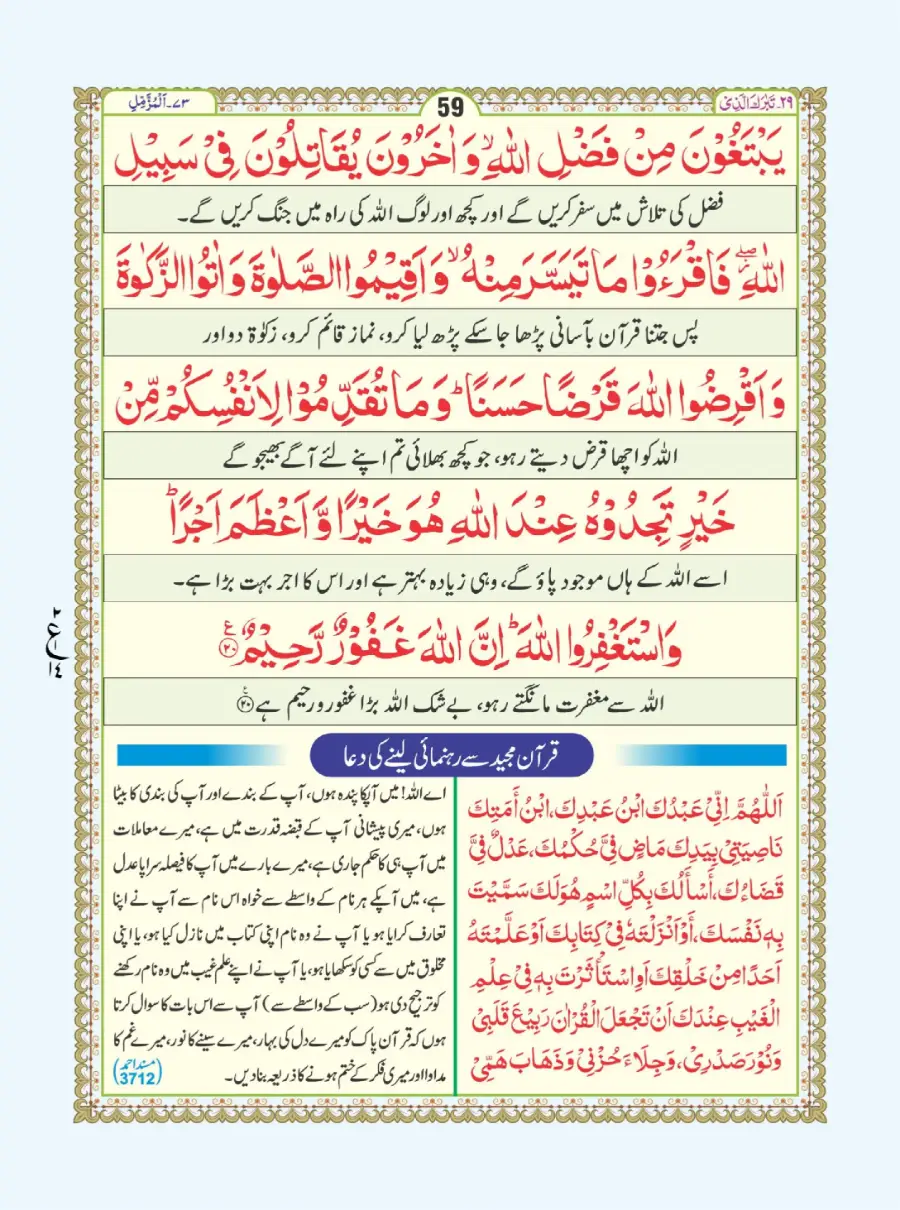 ٢٩۔ تَبٰرَكَ الَّذِیْ
59
٧٣۔ اَلْمُزَّمِّل
يَبْتَغُوْنَ مِنْ فَضْلِ اللّٰهِ ۙ وَ اٰخَرُوْنَ يُقَاتِلُوْنَ فِىْ سَبِيْلِ
فضل کی تلاش میں سفر کریں گے اور کچھ اور لوگ اللہ کی راہ میں جنگ کریں گے۔
اللّٰهِ ۖ فَاقْرَءُوْا مَا تَيَسَّرَ مِنْهُ ۙ وَاَقِيْمُوا الصَّلٰوةَ وَاٰتُوا الزَّكٰوةَ
پس جتنا قرآن بآسانی پڑھا جا سکے پڑھ لیا کرو، نماز قائم کرو، زکوٰۃ دو اور
وَاَقْرِضُوا اللّٰهَ قَرْضًا حَسَنًا ؕ وَمَا تُقَدِّمُوْا لِاَنْفُسِكُمْ مِّنْ
اللہ کو اچھا قرض دیتے رہو، جو کچھ بھلائی تم اپنے لئے آگے بھیجو گے
خَيْرٍ تَجِدُوْهُ عِنْدَ اللّٰهِ هُوَ خَيْرًا وَّاَعْظَمَ اَجْرًا ؕ
اسے اللہ کے ہاں موجود پاؤ گے، وہی زیادہ بہتر ہے اور اس کا اجر بہت بڑا ہے۔
وَاسْتَغْفِرُوا اللّٰهَ ؕ اِنَّ اللّٰهَ غَفُوْرٌ رَّحِيْمٌ ﴿٢٠﴾ ع
اللہ سے مغفرت مانگتے رہو، بے شک اللہ بڑا غفور و رحیم ہے ﴿٢٠﴾
قرآن مجید سے رہنمائی لینے کی دعا
اَللّٰهُمَّ اِنِّیْ عَبْدُكَ ابْنُ عَبْدِكَ، ابْنُ أَمَتِكَ
نَاصِيَتِیْ بِيَدِكَ مَاضٍ فِیَّ حُكْمُكَ، عَدْلٌ فِیَّ
قَضَاءُكَ، أَسْأَلُكَ بِكُلِّ اسْمٍ هُوَ لَكَ سَمَّيْتَ
بِهٖ نَفْسَكَ، أَوْ أَنْزَلْتَهٗ فِیْ كِتَابِكَ أَوْ عَلَّمْتَهٗ
اَحَدًا مِنْ خَلْقِكَ اَوِ اسْتَأْثَرْتَ بِهٖ فِیْ عِلْمِ
الْغَيْبِ عِنْدَكَ اَنْ تَجْعَلَ الْقُرْاٰنَ رَبِيْعَ قَلْبِیْ
وَنُوْرَ صَدْرِیْ، وَجِلَاءَ حُزْنِیْ وَذَهَابَ هَمِّیْ
اے اللہ! میں آپکا بندہ ہوں، آپ کے بندے اور آپ کی بندی کا بیٹا
ہوں، میری پیشانی آپ کے قبضہ قدرت میں ہے، میرے معاملات
میں آپ ہی کا حکم جاری ہے، میرے بارے میں آپ کا فیصلہ سراپا عدل
ہے، میں آپکے ہر نام کے واسطے سے خواہ اس نام سے آپ نے اپنا
تعارف کرایا ہو یا آپ نے وہ نام اپنی کتاب میں نازل کیا ہو، یا اپنی
مخلوق میں سے کسی کو سکھایا ہو، یا آپ نے اپنے علم غیب میں وہ نام رکھنے
کو ترجیح دی ہو (سب کے واسطے سے) آپ سے اس بات کا سوال کرتا
ہوں کہ قرآن پاک کو میرے دل کی بہار، میرے سینے کا نور، میرے غم کا
مداوا اور میری فکر کے ختم ہونے کا ذریعہ بنا دیں۔
(مسند احمد 3712)